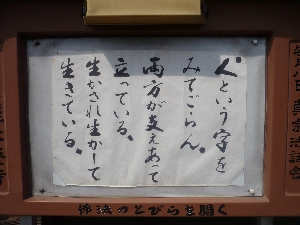 人という字を
みてごらん。
両方が支えあって
立っている。
生かされ生かして
生きている。
佛法のとびらを開く